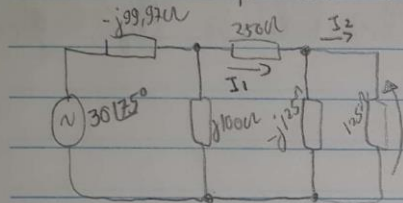 -j99,97Ω
250Ω
I2
I1
30∠75°
j100Ω
-j125Ω
125Ω